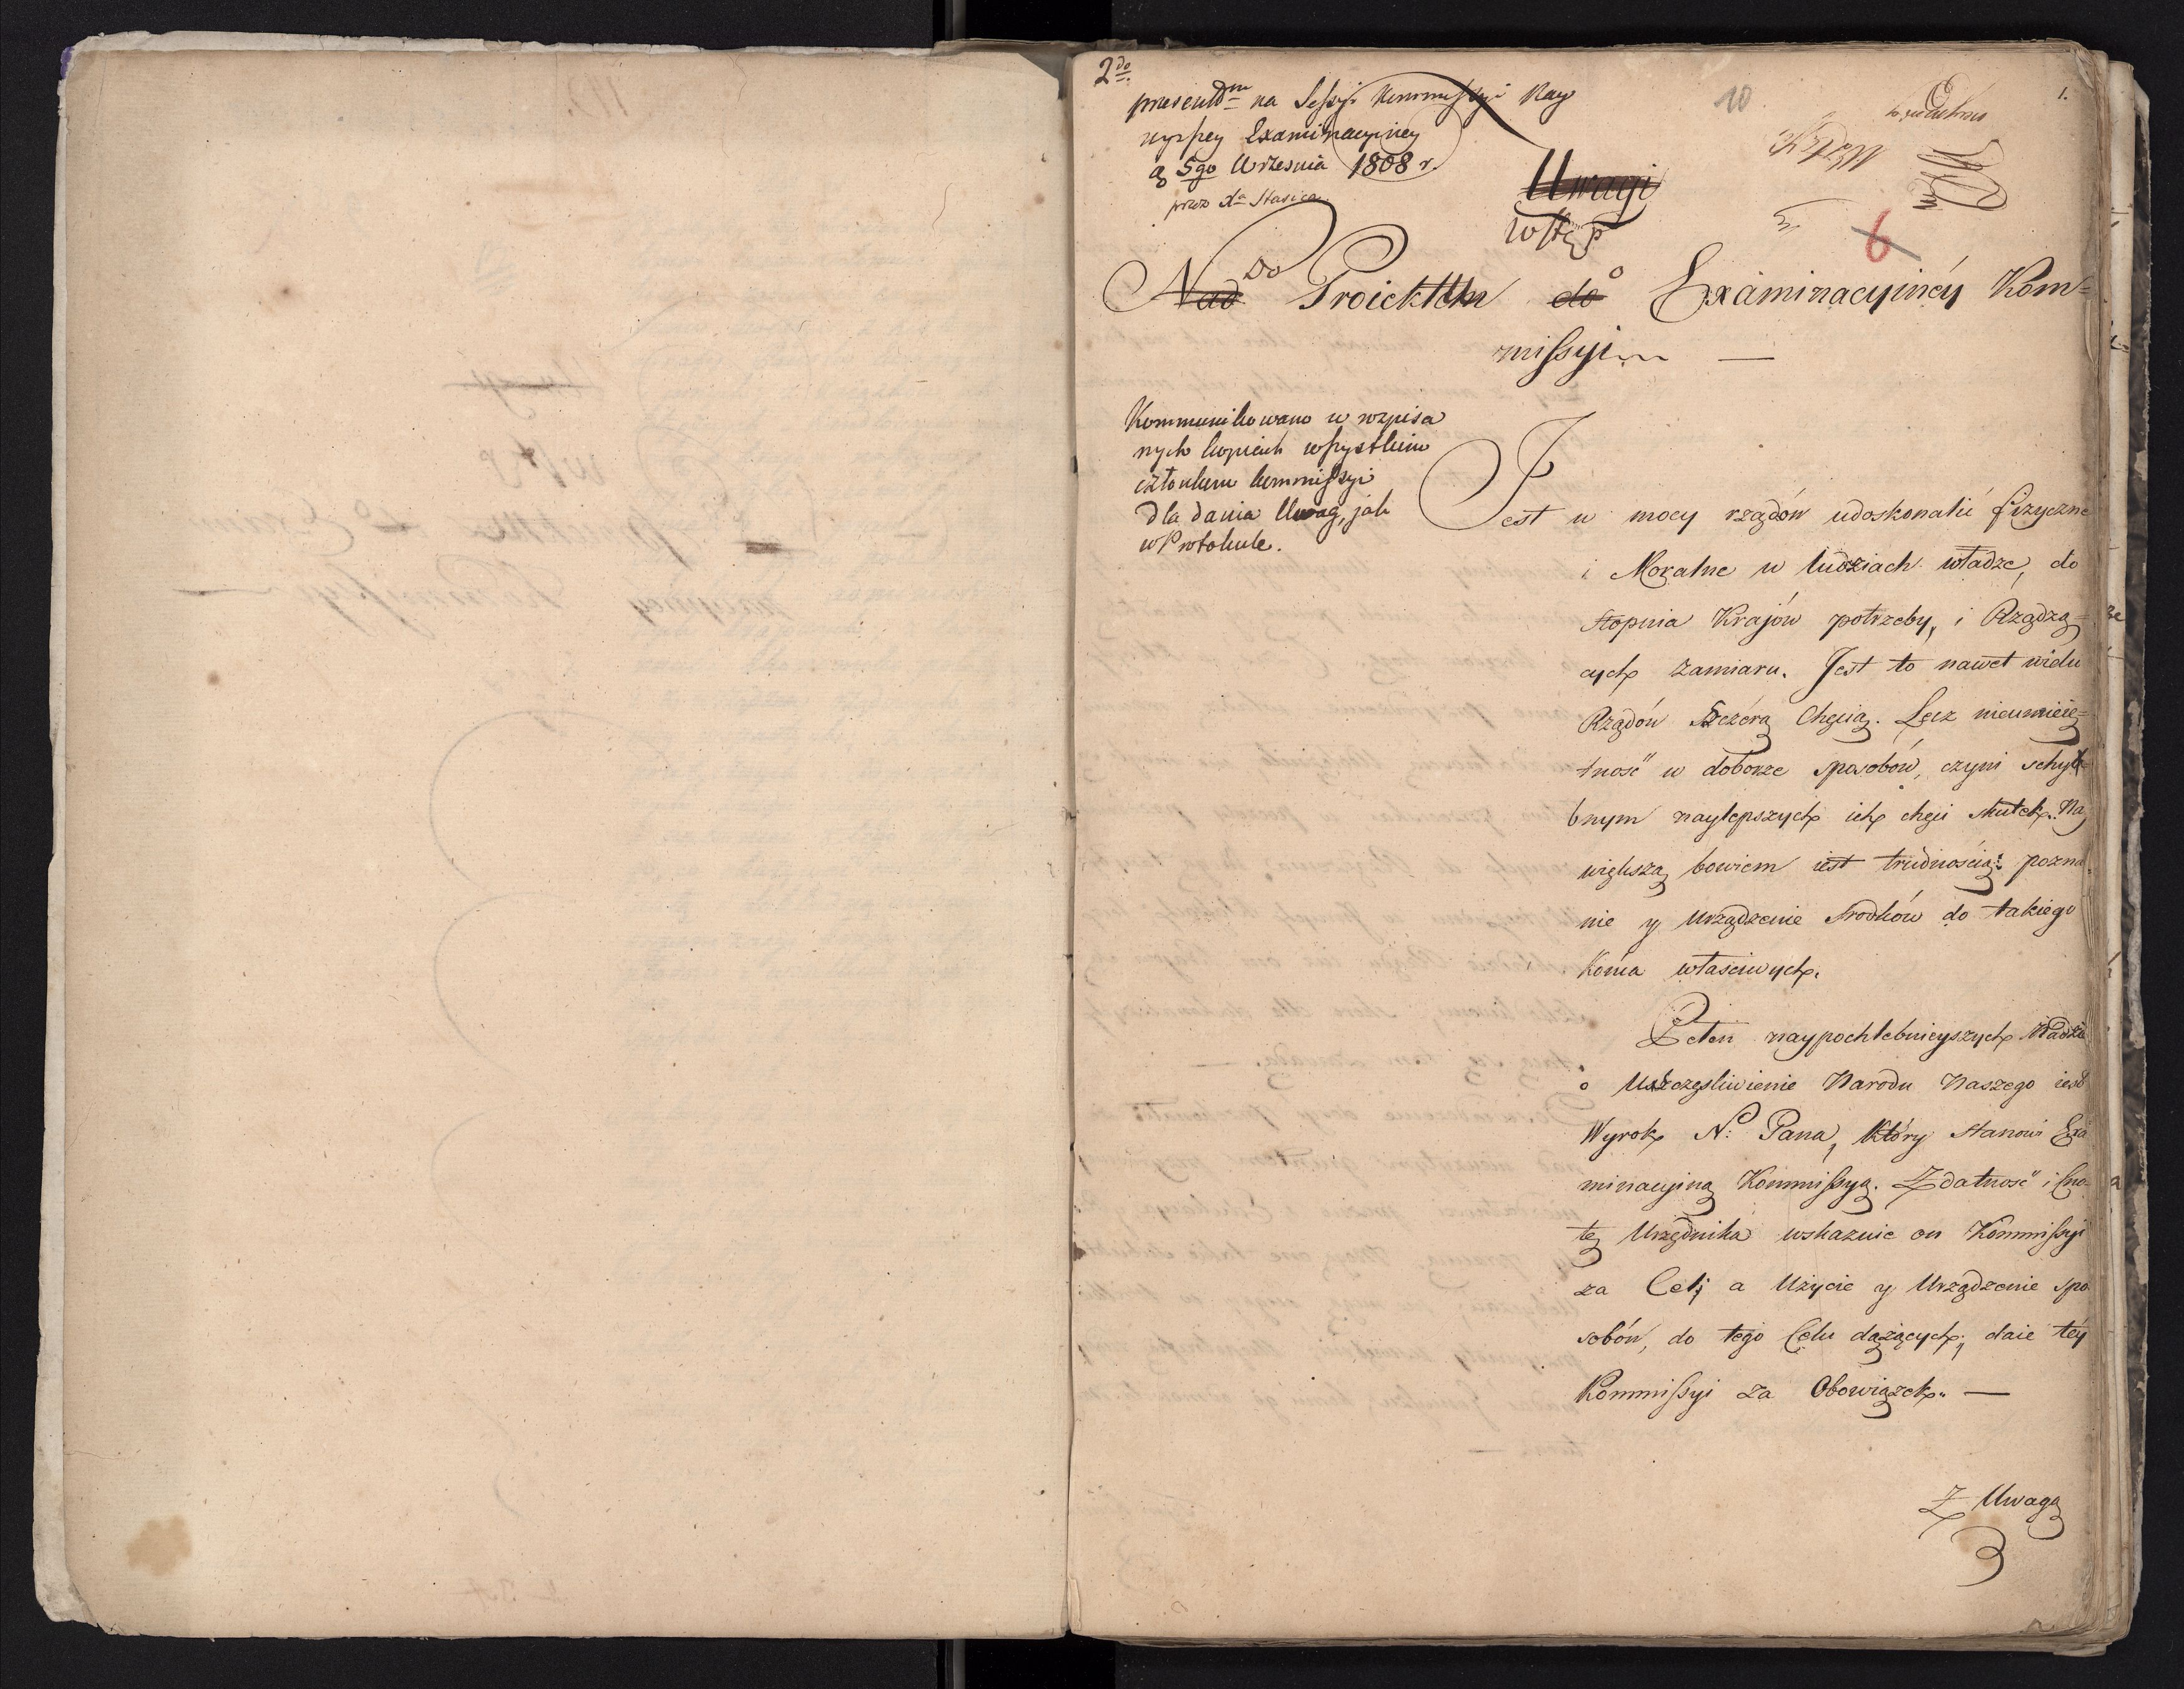 2do
presentdm na Sessyi Kommissyi Nay
wyższey Examinacyiney
d. 5go Września 1808 r.
przez Xa Stasica
10
1.
6
Uwagi
Wstęp
Nad Do Proiektu do Examinacyinéy Kom=
missyi
Kommunikowano w rozpisa
nych kopiach wszystkim
członkom kommissyi
dla dania Uwag, jak
w Protokule.
Jest w mocy rządów udoskonalić fizyczne
i Moralne w ludziach władze, do
Stopnia Krajów potrzeby, i Rządzą=
cych zamiaru. Jest to nawet wielu
Rządów Szczérą Chęcią. Lecz nieumieię=
tność w doborze sposobów, czyni schyb=
bnym naylepszych ich chęci skutek. Nay
większą bowiem iest trudnością: pozna=
nie y Urządzenie Srodków do takiego
Końca właściwych.
Celem naypochlebnieyszych Nadziei
o Uszczęśliwienie Narodu Naszego iest
Wyrok N: Pana, który stanowi Exa
minacyiną Kommissyą. Zdatność i Cno=
tę Urzędnika wskazuie on Kommissyi
za Cel; a Użycie y Urządzenie spo
sobów, do tego Celu dążących; daie téy
Kommissyi za Obowiązek. —
Z Uwagą